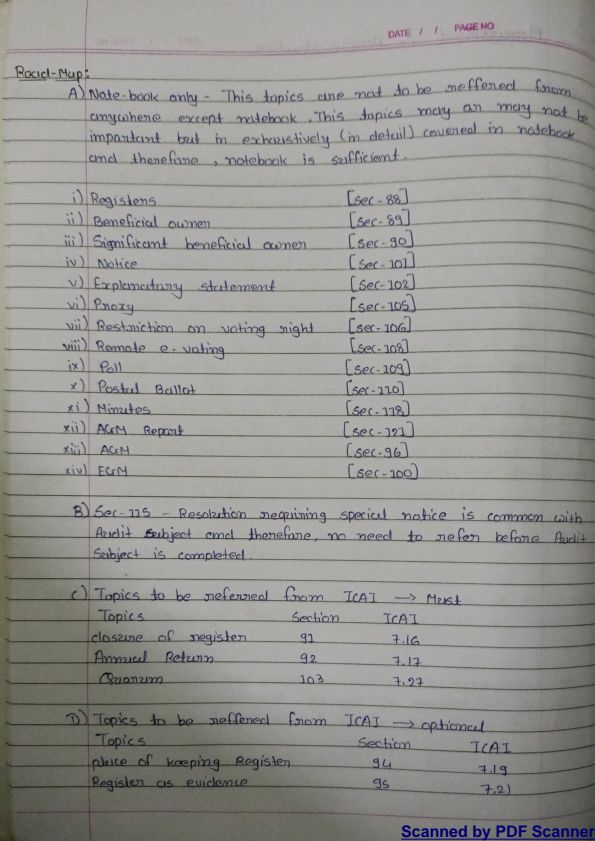 DATE / / PAGE NO
Road-Map:
A) Note-book only - This topics are not to be reffered from
anywhere except notebook. This topics may or may not be
important but in exhaustively (in detail) covered in notebook
and therefore, notebook is sufficient.
i) Registers [sec-88]
ii) Beneficial owner [sec-89]
iii) Significant beneficial owner [sec-90]
iv) Notice [sec-101]
v) Explanatary statement [sec-102]
vi) Proxy [sec-105]
vii) Restriction on voting right [sec-106]
viii) Remote e-voting [sec-108]
ix) Poll [sec-109]
x) Postal Ballot [sec-110]
xi) Minutes [sec-118]
xii) AGM Report [sec-121]
xiii) AGM [sec-96]
xiv) EGM [sec-100]
B) Sec-115 - Resolution requiring special notice is common with
Audit subject and therefore, no need to refer before Audit
Subject is completed.
C) Topics to be referred from ICAI → Must
Topics Section ICAI
closure of register 91 7.16
Annual Return 92 7.17
Quorum 103 7.27
D) Topics to be reffered from ICAI → optional
Topics Section ICAI
place of keeping Register 94 7.19
Register as evidence 95 7.21
Scanned by PDF Scanner